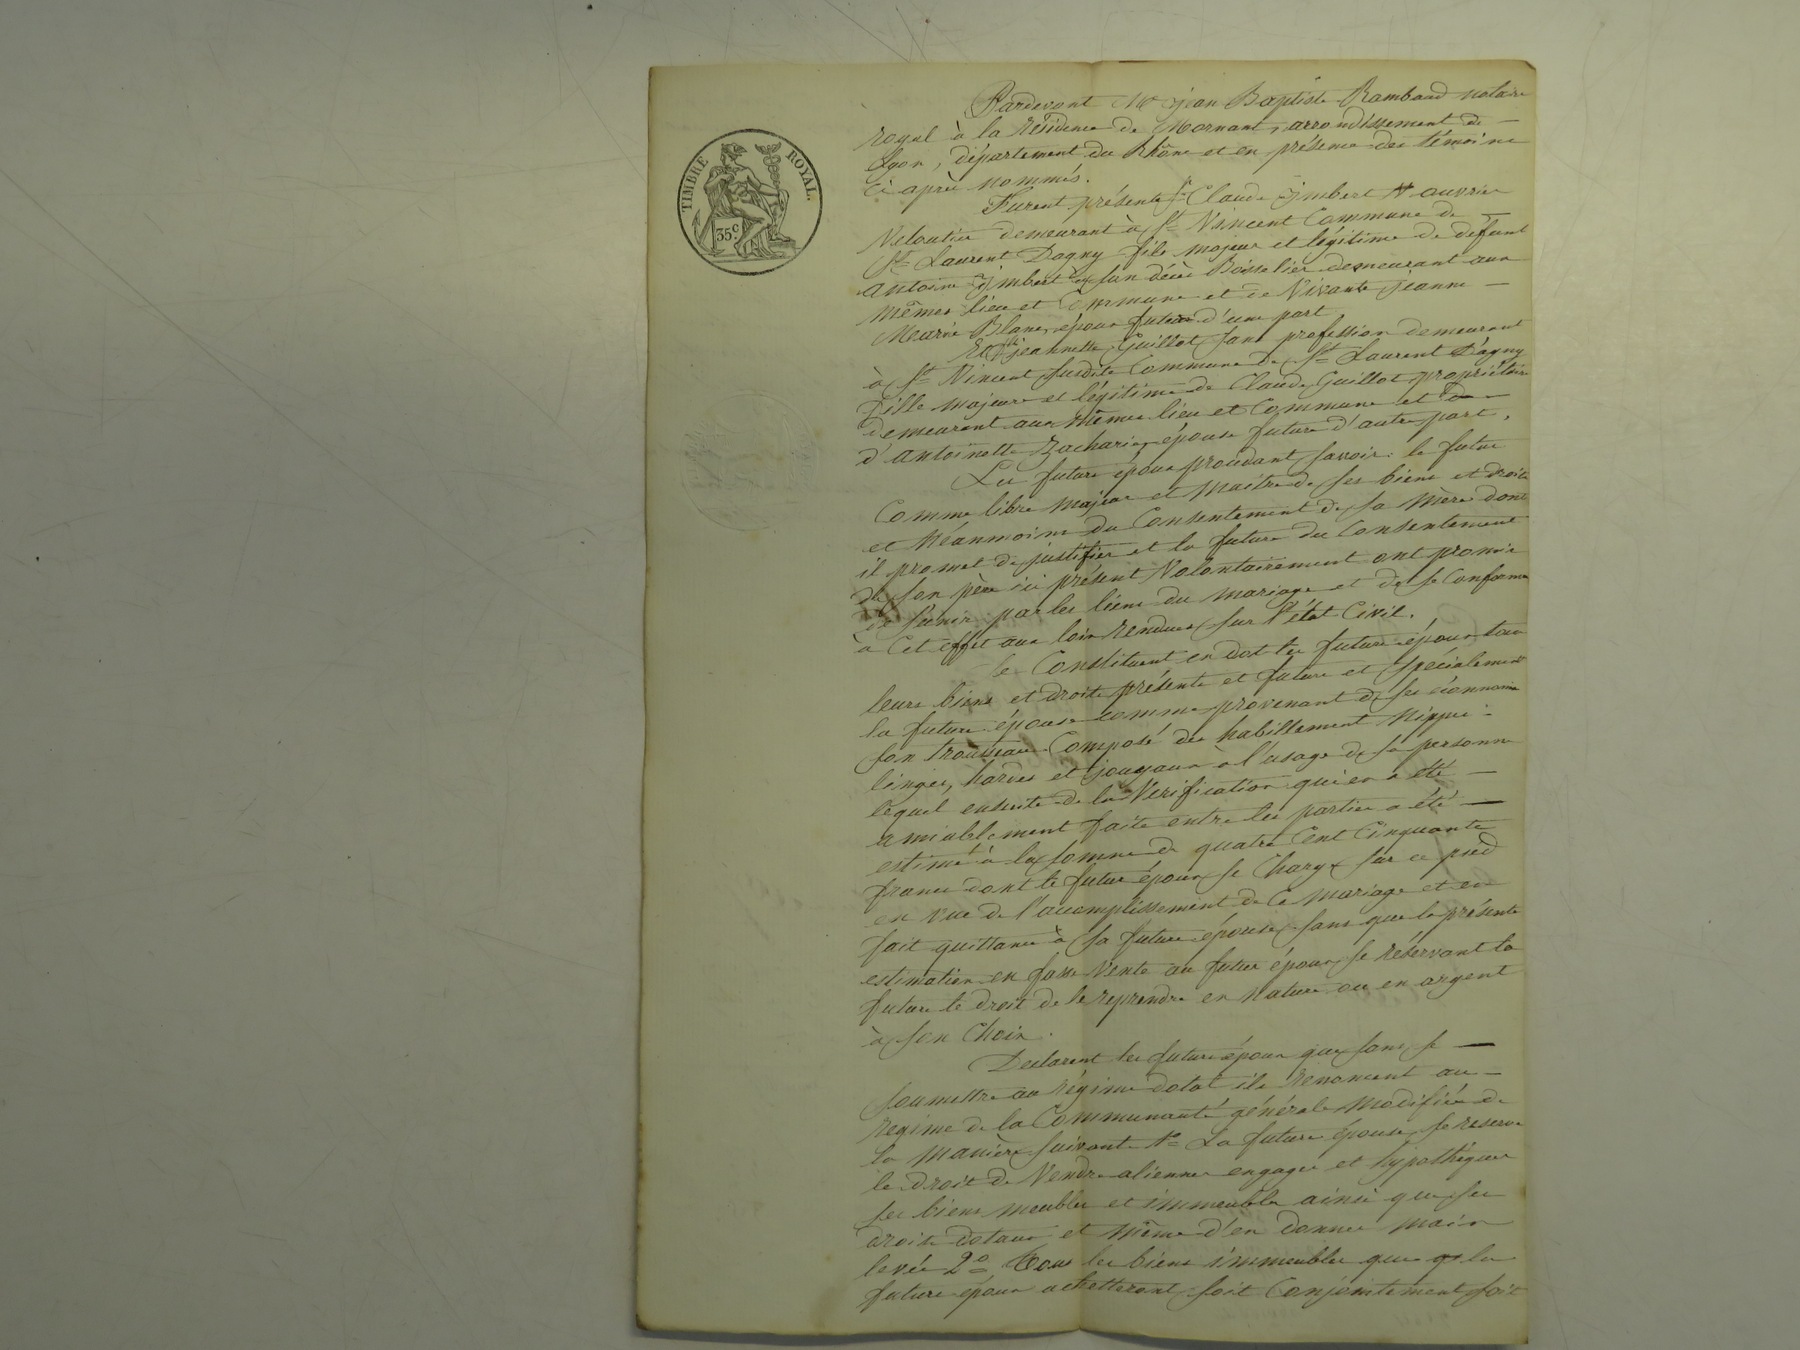 TIMBRE ROYAL.
35 c.
Pardevant Me jean Baptiste Rambaud notaire
royal à la résidence de Mornant, arrondissement de —
Lyon, département du Rhône et en présence des témoins
ci après nommés.
Furent présents Sr Claude Imbert ouvrier
Veloutier demeurant à St Vincent Commune de
St Laurent Dagny fils majeur et légitime de défunt
antoine Imbert en son décès Boisselier demeurant aux
mêmes lieu et Commune et de Vivante jeanne —
Marie Blanc, époux futur d'une part
Et Dlle jeannette Guillot sans profession demeurant
à St Vincent susdite Commune de St Laurent D'agny
fille majeure et légitime de Claude Guillot propriétaire
demeurant aux mêmes lieu et Commune et de —
d'antoinette Zacharie, épouse future d'autre part,
Les futurs époux procédant savoir: le futur
Comme libre majeur et maitre de ses biens et droits
et Néanmoins du Consentement de sa mère dont
il promet de justifier et la future du Consentement
de son père ici présent Volontairement ont promis
de s'unir par les liens du mariage et de se Conformer
à Cet effet aux loix rendues sur l'état Civil.
se Constituent en dot les futurs époux tous
leurs biens et droits présents et futurs et spécialement
la future épouse comme provenant de ses économies
son trousseau Composé des habillement Nippes -
linges, hardes et joyaux à l'usage de sa personne
lequel ensuite de la Vérification qui en a été —
amiablement faite entre les parties a été —
estimé à la somme de quatre Cent Cinquante
francs dont le futur époux se Charge sur ce pied
en vue de l'accomplissement de Ce mariage et en
fait quittance à sa future épouse, sans que la présente
estimation en fasse Vente au futur époux se réservant la
future le droit de le reprendre en Nature ou en argent
à son Choix.
Declarent les futurs époux que sans se —
soumettre au régime dotal ils renoncent au —
régime de la Communauté générale modifiée de
la manière suivante 1o La future épouse se reserve
le droit de Vendre aliener engager et hypothéquer
ses biens meubles et immeubles ainsi que ses
droits dotaux et même d'en donner main
levée 2o Tous les biens immeubles que les
futurs époux achetteront soit Conjointement soit